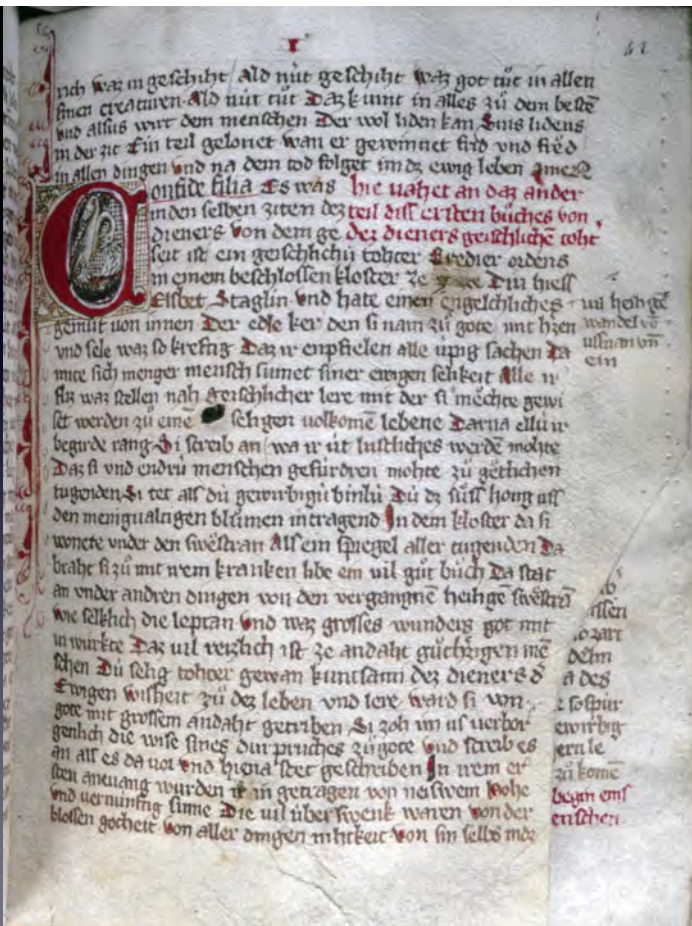 I
62
nich waz in geschiht / Ald nút geschiht waz got tůt in allen
sinen creaturen. Ald nút tůt Daz kunt in alles zů dem bestē
vnd allsus wirt dem menschen Der wol liden kan. Sins lidens
in der zit Ein teil gelonet wan er gewinnet frid vnd frôd
in allen dingen vnd na dem tod folget im dz ewig leben amen
Confide filia Es was hie vahet an daz ander
in den selben ziten dez teil diss ersten bůches von
dieners von dem ge dez dieners geischlichē toht
seit ist ein geischlichú tohter Bredier ordens
in einem beschlossen kloster ze Diu hiess
Elsbet Staglin vnd hate einen engelschliches
gemút von innen Der edle ker den si nam zů gote mit hzen
vnd sele waz so kreftig Daz ir enpfielen alle úpig sachen Da
mite sich menger mensch sumet siner ewigen selikeit Alle ir
fliz waz stellen nah geischlicher lere mit der si mӧchte gewi
set werden zů eimē seligen volkomē lebene Darna ellú ir
begirde rang. Si screib an / wa ir út lustliches werdē mohte
Daz si vnd endrú menschen gefúrdren mohte zů gӧtlichen
tugenden. Si tet als dú gewirbigú binlú Dú dz súss hong uss
den menigualtigen blůmen intragend In dem kloster da si
wonete vnder den swӧstran Als ein spiegel aller tugenden Da
braht si zů mit irem kranken libe ein vil gůt bůch Da stat
an vnder andren dingen von den vergangnē heilige swӧstrā
wie selklich die leptan vnd waz grosses wunders got mit
in wurkte Daz vil reizlich ist ze andaht gůthzigen mē
schen Dú selig tohter gewan kuntsami dez dieners d
Ewigen wisheit zů dez leben vnd lere ward si von
gote mit grossem andaht getriben Si zoh im us verbor
genlich die wise sines durpruches zů gote vnd screib es
an als es da vor vnd hiena stet geschriben In irem er
sten anuang wurden ir in getragen von neiswem hohe
vnd vernúnftig sinne Die vil úberswenk waren von der
blossen gotheit von aller dingen nihtkeit von sin selbs
vn heilgē
wandel vō
ussnan vn
ein
ssen
zart
a des
so spúr
ewirbig
zů komē
begin eins
enschen